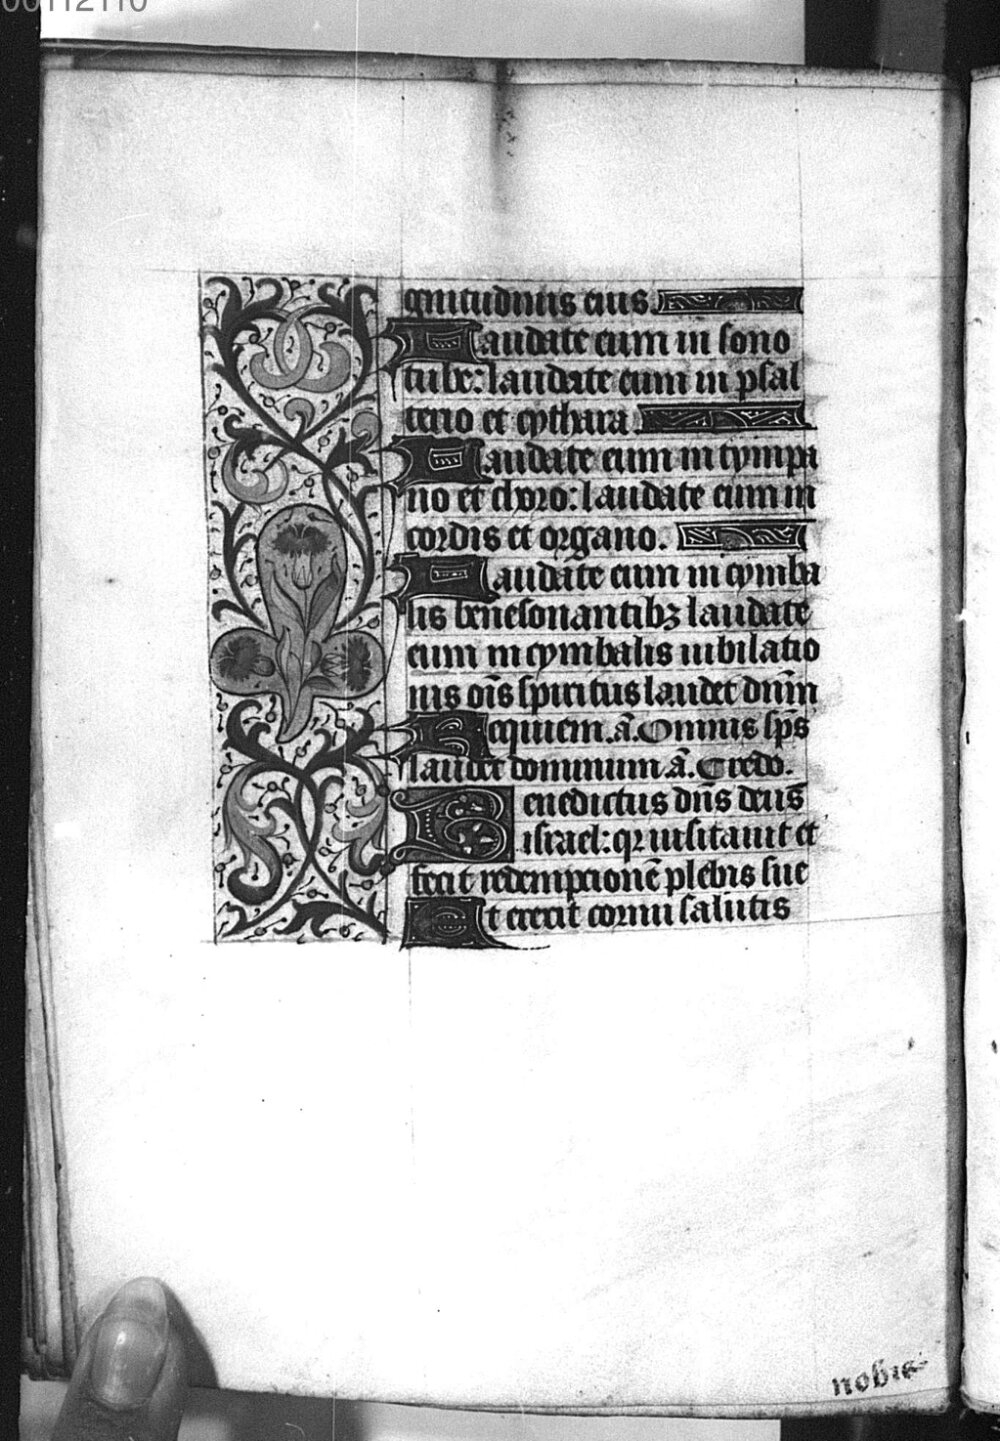 00112110
gnitudinis eius.
Laudate eum in sono
tube: laudate eum in psal
terio et cythara
Laudate eum in tympa
no et choro: laudate eum in
cordis et organo.
Laudate eum in cymba
lis benesonantibꝫ laudate
eum in cymbalis iubilatio
nis oīs spiritus laudet dn̄m
Requiem .ā. Omnis sp̄s
laudet dominum .ā. Credo.
Benedictus dn̄s deus
israel: qꝛ uisitauit et
fecit redemptionē plebis sue
Et erexit cornu salutis
nobis